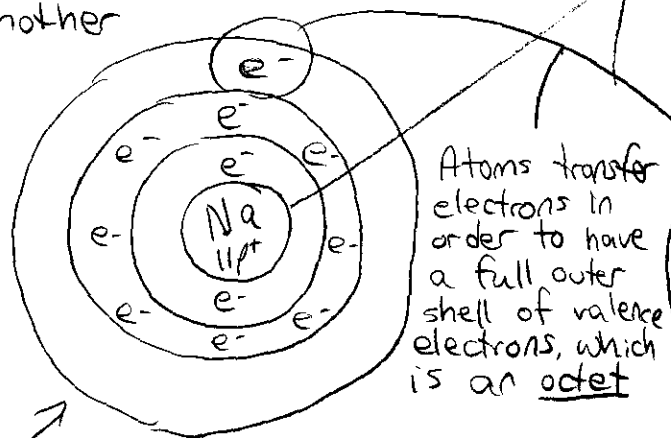 nother
e-
e-
e- e-
e-
Na
11p+
e- e-
e-
e- e-
e-
Atoms transfer
electrons in
order to have
a full outer
shell of valence
electrons, which
is an octet